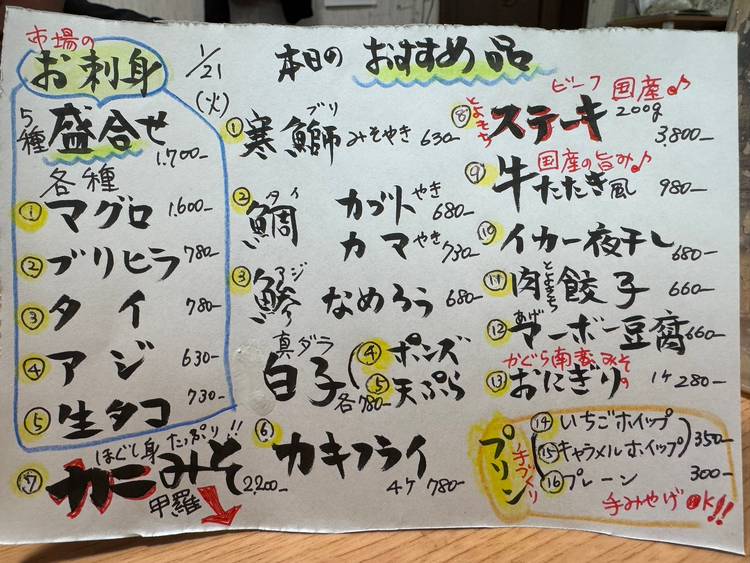 市場の
お刺身
5種盛合せ
1,700-
各種
① マグロ 1,600-
② ブリヒラ 780-
③ タイ 780-
④ アジ 630-
⑤ 生タコ 730-
1/21
(火)
本日の おすすめ品
① 寒鰤 ブリ みそやき 630-
② 鯛 タイ カブトやき 680-
カマやき 730-
③ 鯵 アジ なめろう 680-
真ダラ
白子 各780-
④ ポンズ
⑤ 天ぷら
⑥ カキフライ
4ケ 780-
ほぐし身 たっぷり!!
⑦ カニみそ 2,200-
甲羅
ビーフ 国産♪
⑧ とよもち ステーキ 200g
3,800-
国産の旨み♪
⑨ 牛たたき風 980-
⑩ イカ一夜干し 680-
⑪ 肉餃子 660-
⑫ あげマーボー豆腐 660-
かぐら南蛮みその
⑬ おにぎり 1ケ 280-
手づくり
プリン
⑭ いちごホイップ
⑮ キャラメルホイップ 350-
⑯ プレーン 300-
手みやげOK!!